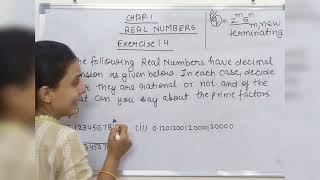 CHAP. 1
REAL NUMBERS
Exercise 1.4
= 2^m 5^n
m, n ∈ W
terminating
he following Real Numbers have decimal
sion as given below. In each case, decide
they are rational or not and of the
at can you say about the prime factors
(ii) 0.120120012000120000